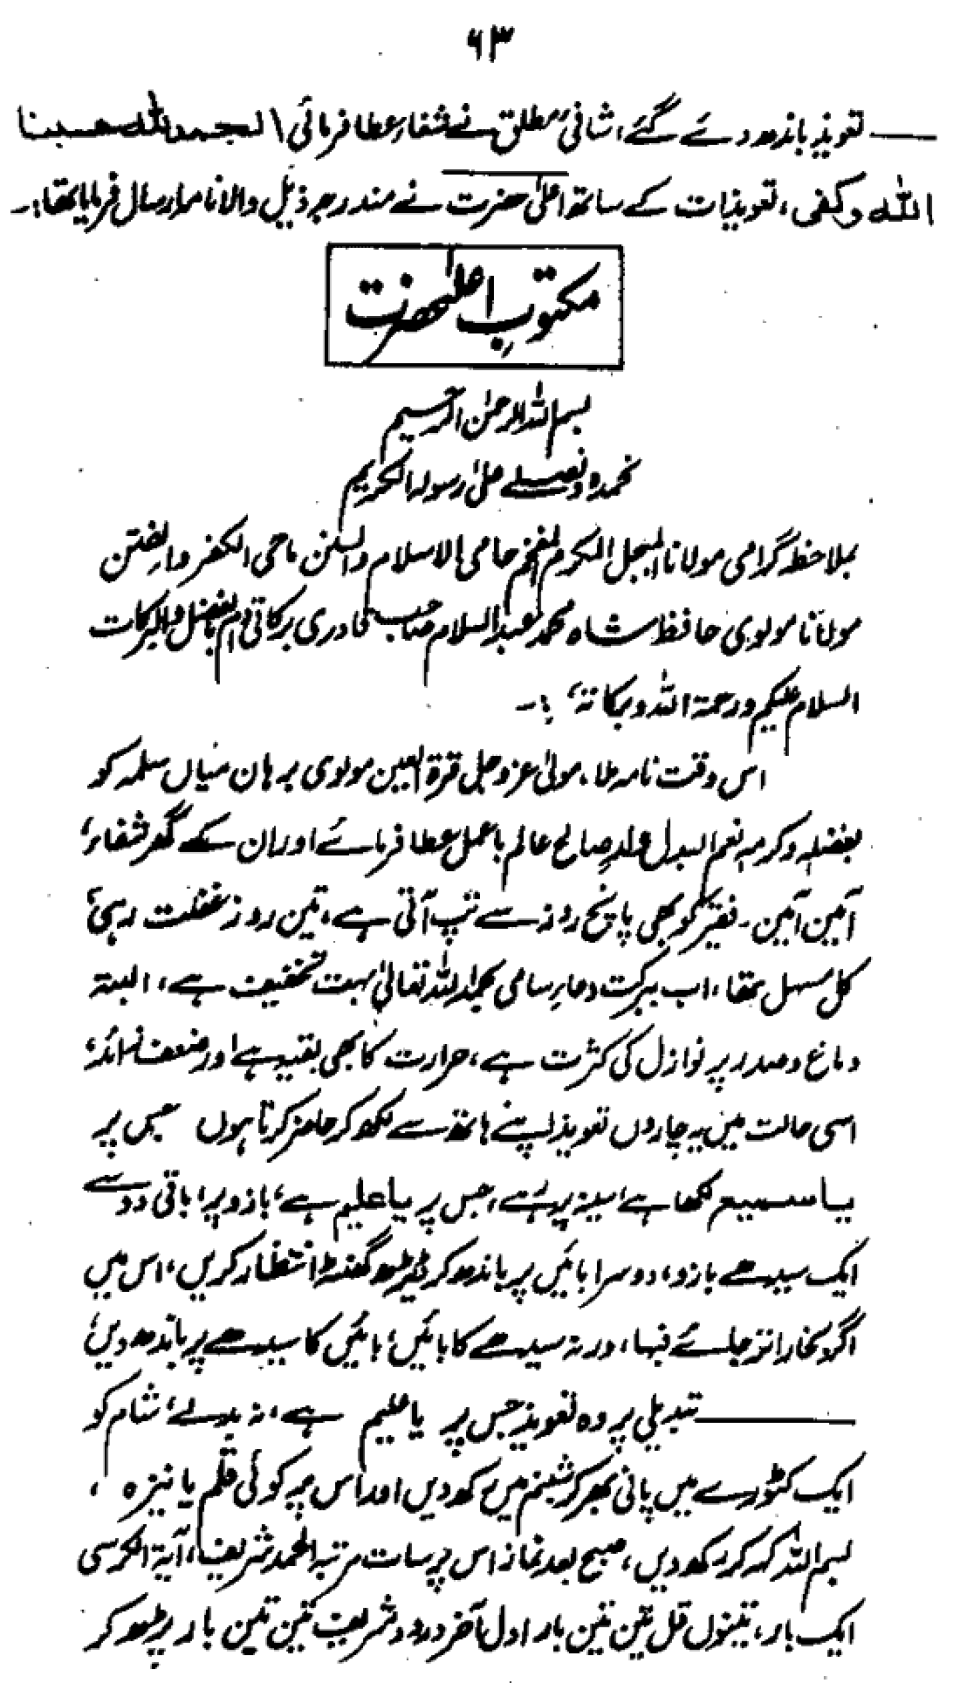 ۶۳
ــــ تعویذ باندھ دئے گئے، شافیٔ مطلق نے شفاء عطا فرمائی الحمدللہ حسبنا
اللہ وکفی، تعویذات کے ساتھ اعلیٰ حضرت نے مندرجہ ذیل والا نامہ ارسال فرمایا تھا:۔
مکتوبِ اعلٰحضرت
بسم اللہ الرحمٰن الرحیم
نحمدہ ونصلے علیٰ رسولہ الکریم
بملاحظہ گرامی مولانا المبجل المکرم المفخم حامی الاسلام والسنن ماحی الکفر والفتن
مولانا مولوی حافظ شاہ محمد عبدالسلام صاحب قادری برکاتی دام بالفضل والبرکات
السلام علیکم ورحمۃ اللہ وبرکاتہٗ :۔
اس وقت نامہ ملا، مولیٰ عزوجل قرۃ العین مولوی برہان میاں سلمہ کو
بفضلہٖ وکرمہٖ نعم البدل ولد صالح عالم باعمل عطا فرمائے اور ان کے گھر شفاء،
آمین آمین۔ فقیر کو بھی پانچ روز سے تپ آتی ہے، تین روز غفلت رہی،
کل مسہل تھا، اب ببرکت دعاء سامی بحمداللہ تعالیٰ بہت تخفیف ہے، البتہ
دماغ و صدر پر نوازل کی کثرت ہے، حرارت کا بھی بقیہ ہے اور ضعف زائد،
اسی حالت میں یہ چاروں تعویذ اپنے ہاتھ سے لکھ کر حاضر کرتا ہوں جس پر
یا سمیع لکھا ہے سینہ پر ہے، جس پر یا علیم ہے، بازو پر، باقی دو سے
ایک سیدھے بازو، دوسرا بائیں پر باندھ کر ڈیڑھ گھنٹہ انتظار کریں، اس میں
اگر بخار اتر جائے فبہا، ورنہ سیدھے کا بائیں، بائیں کا سیدھے پر باندھ دیں،
ــــ تبدیلی پر وہ تعویذ جس پر یا علیم ہے، نہ بدلے، شام کو
ایک کٹورے میں پانی بھر کر شبنم میں رکھ دیں اور اس پر کوئی قلم یا نیزہ،
بسم اللہ کہہ کر رکھ دیں، صبح بعد نماز اس پر سات مرتبہ الحمد شریف، آیۃ الکرسی
ایک بار، تینوں قل تین تین بار اول آخر درود شریف تین تین بار پڑھ کر